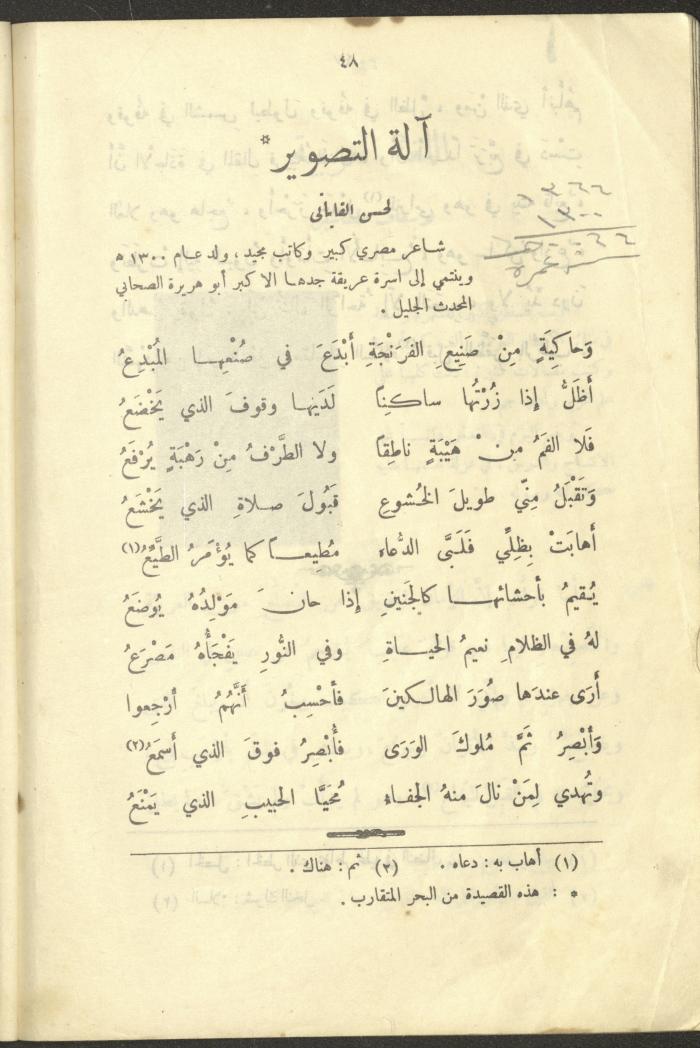 ٤٨
آلة التصوير *
لحسن القاياتي
شاعر مصري كبير وكاتب مجيد ، ولد عام ١٣٠٠ ه
وينتمي إلى اسرة عريقة جدها الاكبر أبو هريرة الصحابي
المحدث الجليل .
وَحاكِيَةٍ مِنْ صَنِيعِ الفَرَنْجَةِ أَبْدَعَ في صُنْعِها المُبْدِعُ
أَظَلُّ إذا زُرْتُها ساكِناً لَدَيْها وقوفَ الذي يَخْضَعُ
فَلا الفَمُ مِنْ هَيْبَةٍ ناطِقاً ولا الطَّرْفُ مِنْ رَهْبَةٍ يُرْفَعُ
وَتَقْبَلُ مِنِّي طويلَ الخُشوعِ قَبُولَ صلاةِ الذي يَخْشَعُ
أهابَتْ بِظِلِّي فَلَبَّى الدُّعاء مُطِيعاً كما يُؤْمَرُ الطَّيِّعُ (١)
يُقيمُ بأحشائها كالجَنينِ إذا حانَ مَوْلِدُهُ يُوضَعُ
لهُ في الظلامِ نعيمُ الحياةِ وفي النُّورِ يَفْجَأُهُ مَصْرَعُ
أَرَى عندَها صُوَرَ الهالكينَ فأحْسِبُ أَنَّهُمُ أُرْجِعوا
وَأُبْصِرُ ثَمَّ مُلوكَ الوَرَى فأُبْصِرُ فوقَ الذي أسمَعُ (٢)
وتُهدي لِمَنْ نالَ منهُ الجفاء مُحَيَّا الحبيبِ الذي يَمْنَعُ
(١) أهاب به : دعاه . (٢) ثم : هناك .
* : هذه القصيدة من البحر المتقارب .